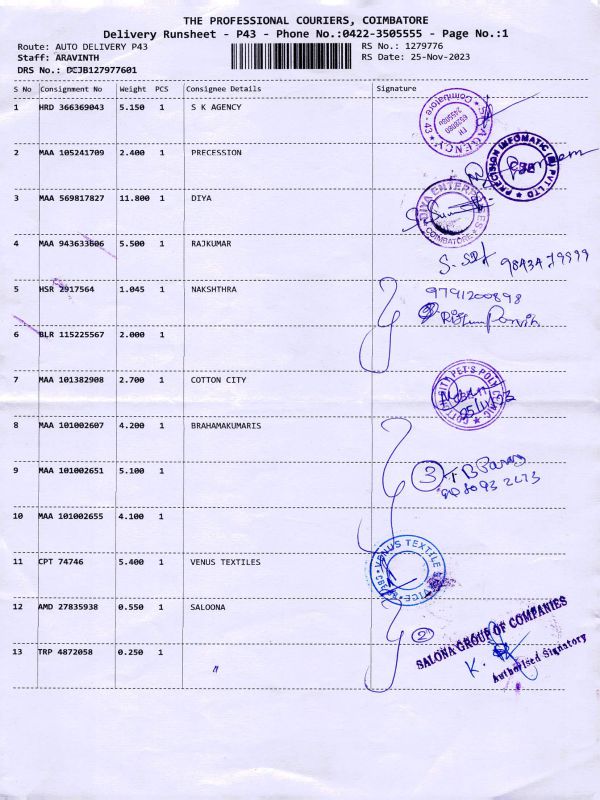 THE PROFESSIONAL COURIERS, COIMBATORE
Delivery Runsheet - P43 - Phone No.:0422-3505555 - Page No.:1
Route: AUTO DELIVERY P43
RS No.: 1279776
Staff: ARAVINTH
RS Date: 25-Nov-2023
DRS No.: DCJB127977601
S No Consignment No Weight PCS Consignee Details Signature
1 HRD 366369043 5.150 1 S K AGENCY
2 MAA 105241709 2.400 1 PRECESSION
PRECISION INFOMATIC (M) PVT LTD
CBE
3 MAA 569817827 11.800 1 DIYA
DIYA ENTERPRISES
COIMBATORE
4 MAA 943633606 5.500 1 RAJKUMAR
9843479999
5 HSR 2917564 1.045 1 NAKSHTHRA
9791200898
6 BLR 115225567 2.000 1
7 MAA 101382908 2.700 1 COTTON CITY
COTTON CITY PET'S POLY CLINIC
8 MAA 101002607 4.200 1 BRAHAMAKUMARIS
9 MAA 101002651 5.100 1
3
10 MAA 101002655 4.100 1
11 CPT 74746 5.400 1 VENUS TEXTILES
VENUS TEXTILE
12 AMD 27835938 0.550 1 SALOONA
2
SALONA GROUP OF COMPANIES
K.
Authorised Signatory
13 TRP 4872058 0.250 1 "